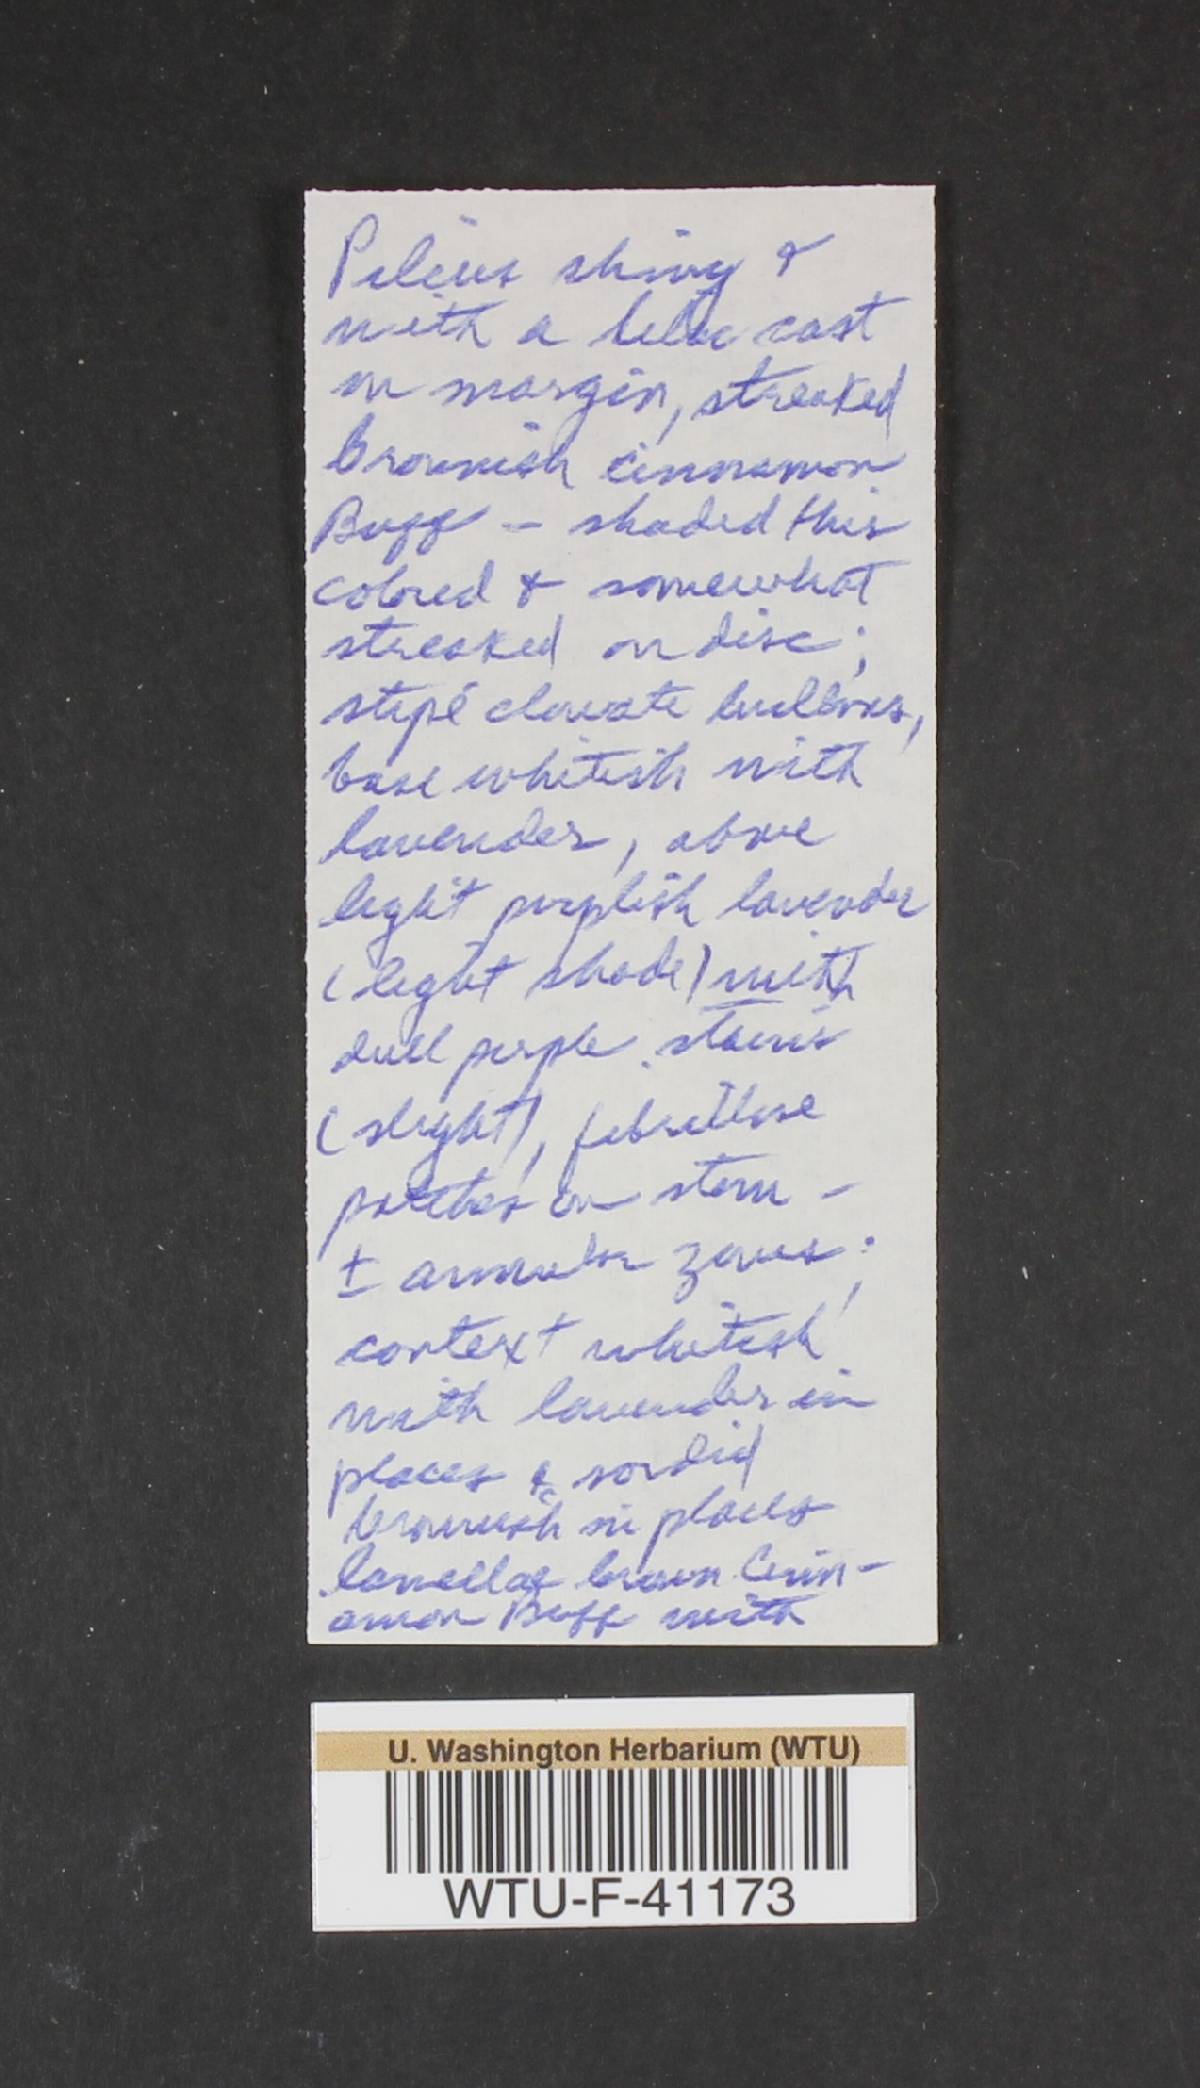 Pileus shiny &
with a lilac cast
on margin, streaked
brownish cinnamon
Buff - shaded this
colored & somewhat
streaked on disc;
stipe clavate bulbous,
base whitish with
lavender, above
light purplish lavender
(light shade) with
dull purple stains
(slight), fibrillose
patches on stem -
± annular zones;
context whitish
with lavender in
places & sordid
brownish in places
lamellae brown Cinn-
amon Buff with
U. Washington Herbarium (WTU)
WTU-F-41173